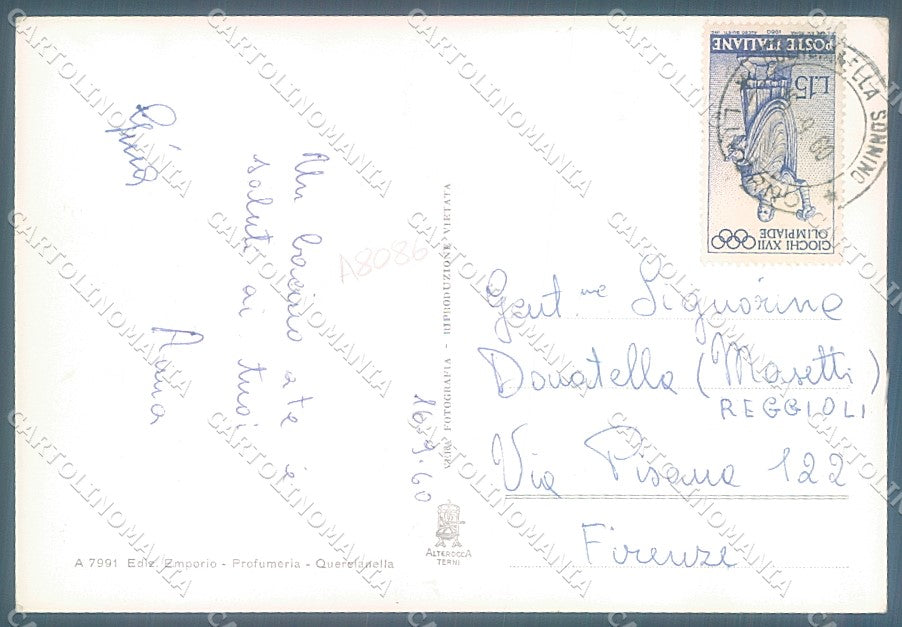 Un bacino a te e
saluti ai tuoi
Anna
16.9.60
A8086
VERA FOTOGRAFIA - RIPRODUZIONE VIETATA
POSTE ITALIANE
L.15
GIOCHI XVII
OLIMPIADE
QUERCIANELLA SONNINO
9 60
Gent.me Signorine
Donatella (Masetti)
REGGIOLI
Via Pisana 122
Firenze
ALTEROCCA
TERNI
A 7991 Ediz. Emporio - Profumeria - Quercianella
CARTOLINOMANIA